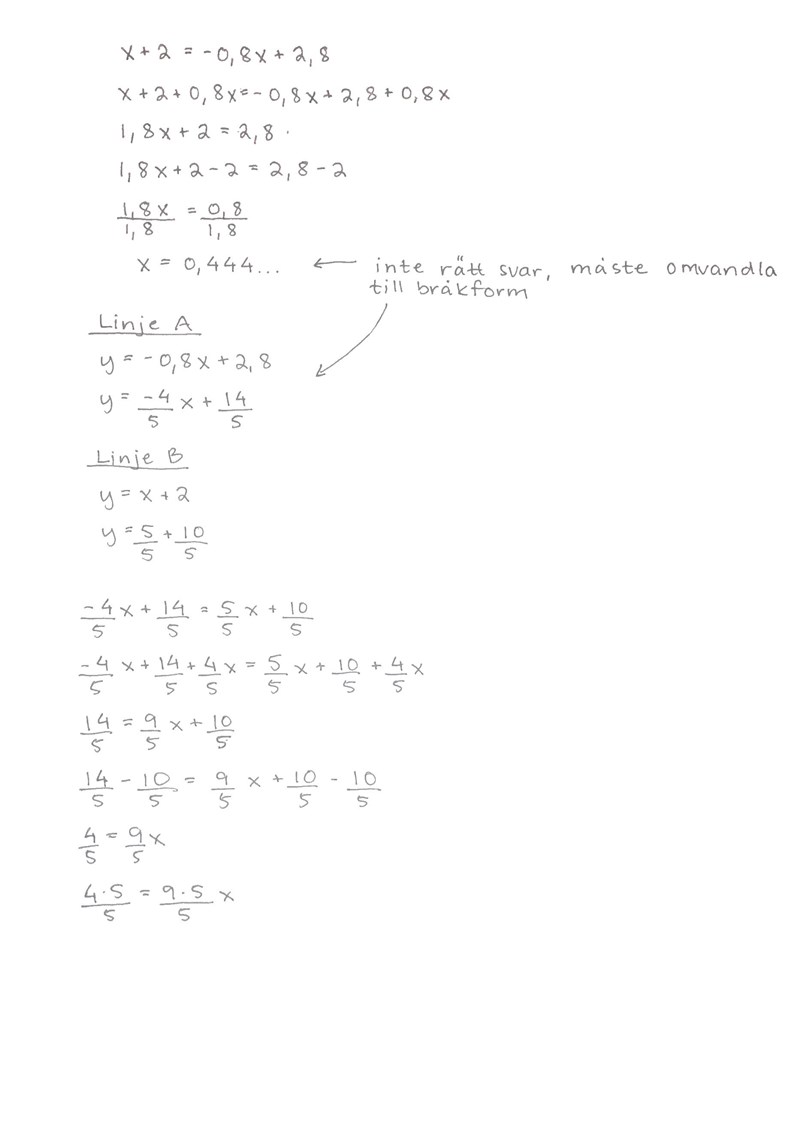 x + 2 = -0,8x + 2,8
x + 2 + 0,8x = -0,8x + 2,8 + 0,8x
1,8x + 2 = 2,8
1,8x + 2 - 2 = 2,8 - 2
1,8x/1,8 = 0,8/1,8
x = 0,444... ← inte rätt svar, måste omvandla
till bråkform
Linje A
y = -0,8x + 2,8
y = -4/5 x + 14/5
Linje B
y = x + 2
y = 5/5 + 10/5
-4/5 x + 14/5 = 5/5 x + 10/5
-4/5 x + 14/5 + 4/5 x = 5/5 x + 10/5 + 4/5 x
14/5 = 9/5 x + 10/5
14/5 - 10/5 = 9/5 x + 10/5 - 10/5
4/5 = 9/5 x
4·5/5 = 9·5/5 x